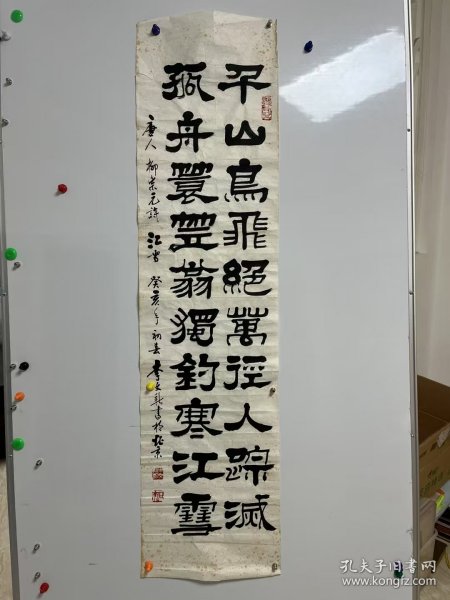 千山鳥飛絕萬徑人蹤滅
孤舟蓑笠翁獨釣寒江雪
唐人柳宗元詩江雪癸亥年初春李文新書於北京
孔夫子旧书网
www.kongfz.com